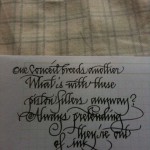 One Conceit breeds another
What is with these
piston fillers anyway?
Always pretending
they're out
of ink